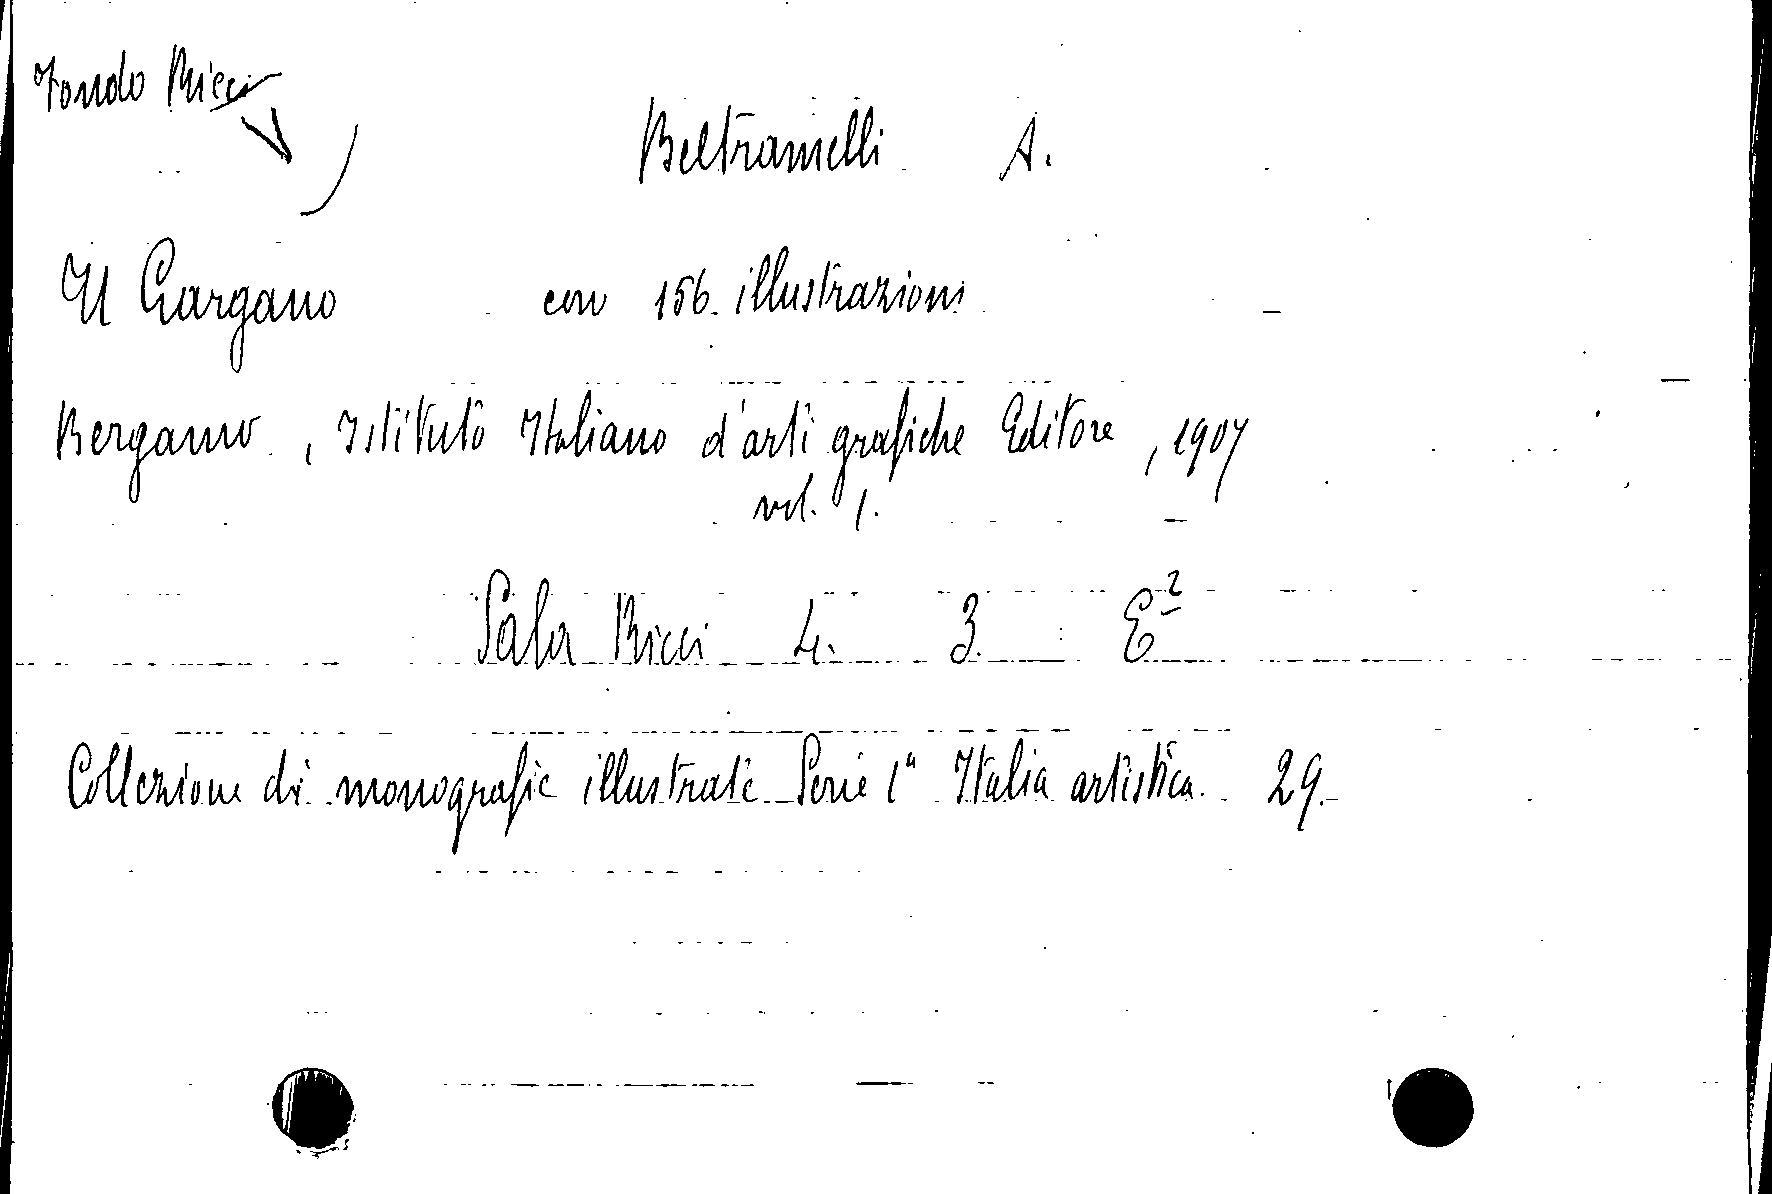 Fondo Ricci
Beltramelli A.
Il Gargano con 156 illustrazioni
Bergamo, Istituto Italiano d'arti grafiche Editore, 1907
vol. 1.
Sala Ricci 4. 3. E²
Collezione di monografie illustrate Serie 1ª Italia artistica. 29.